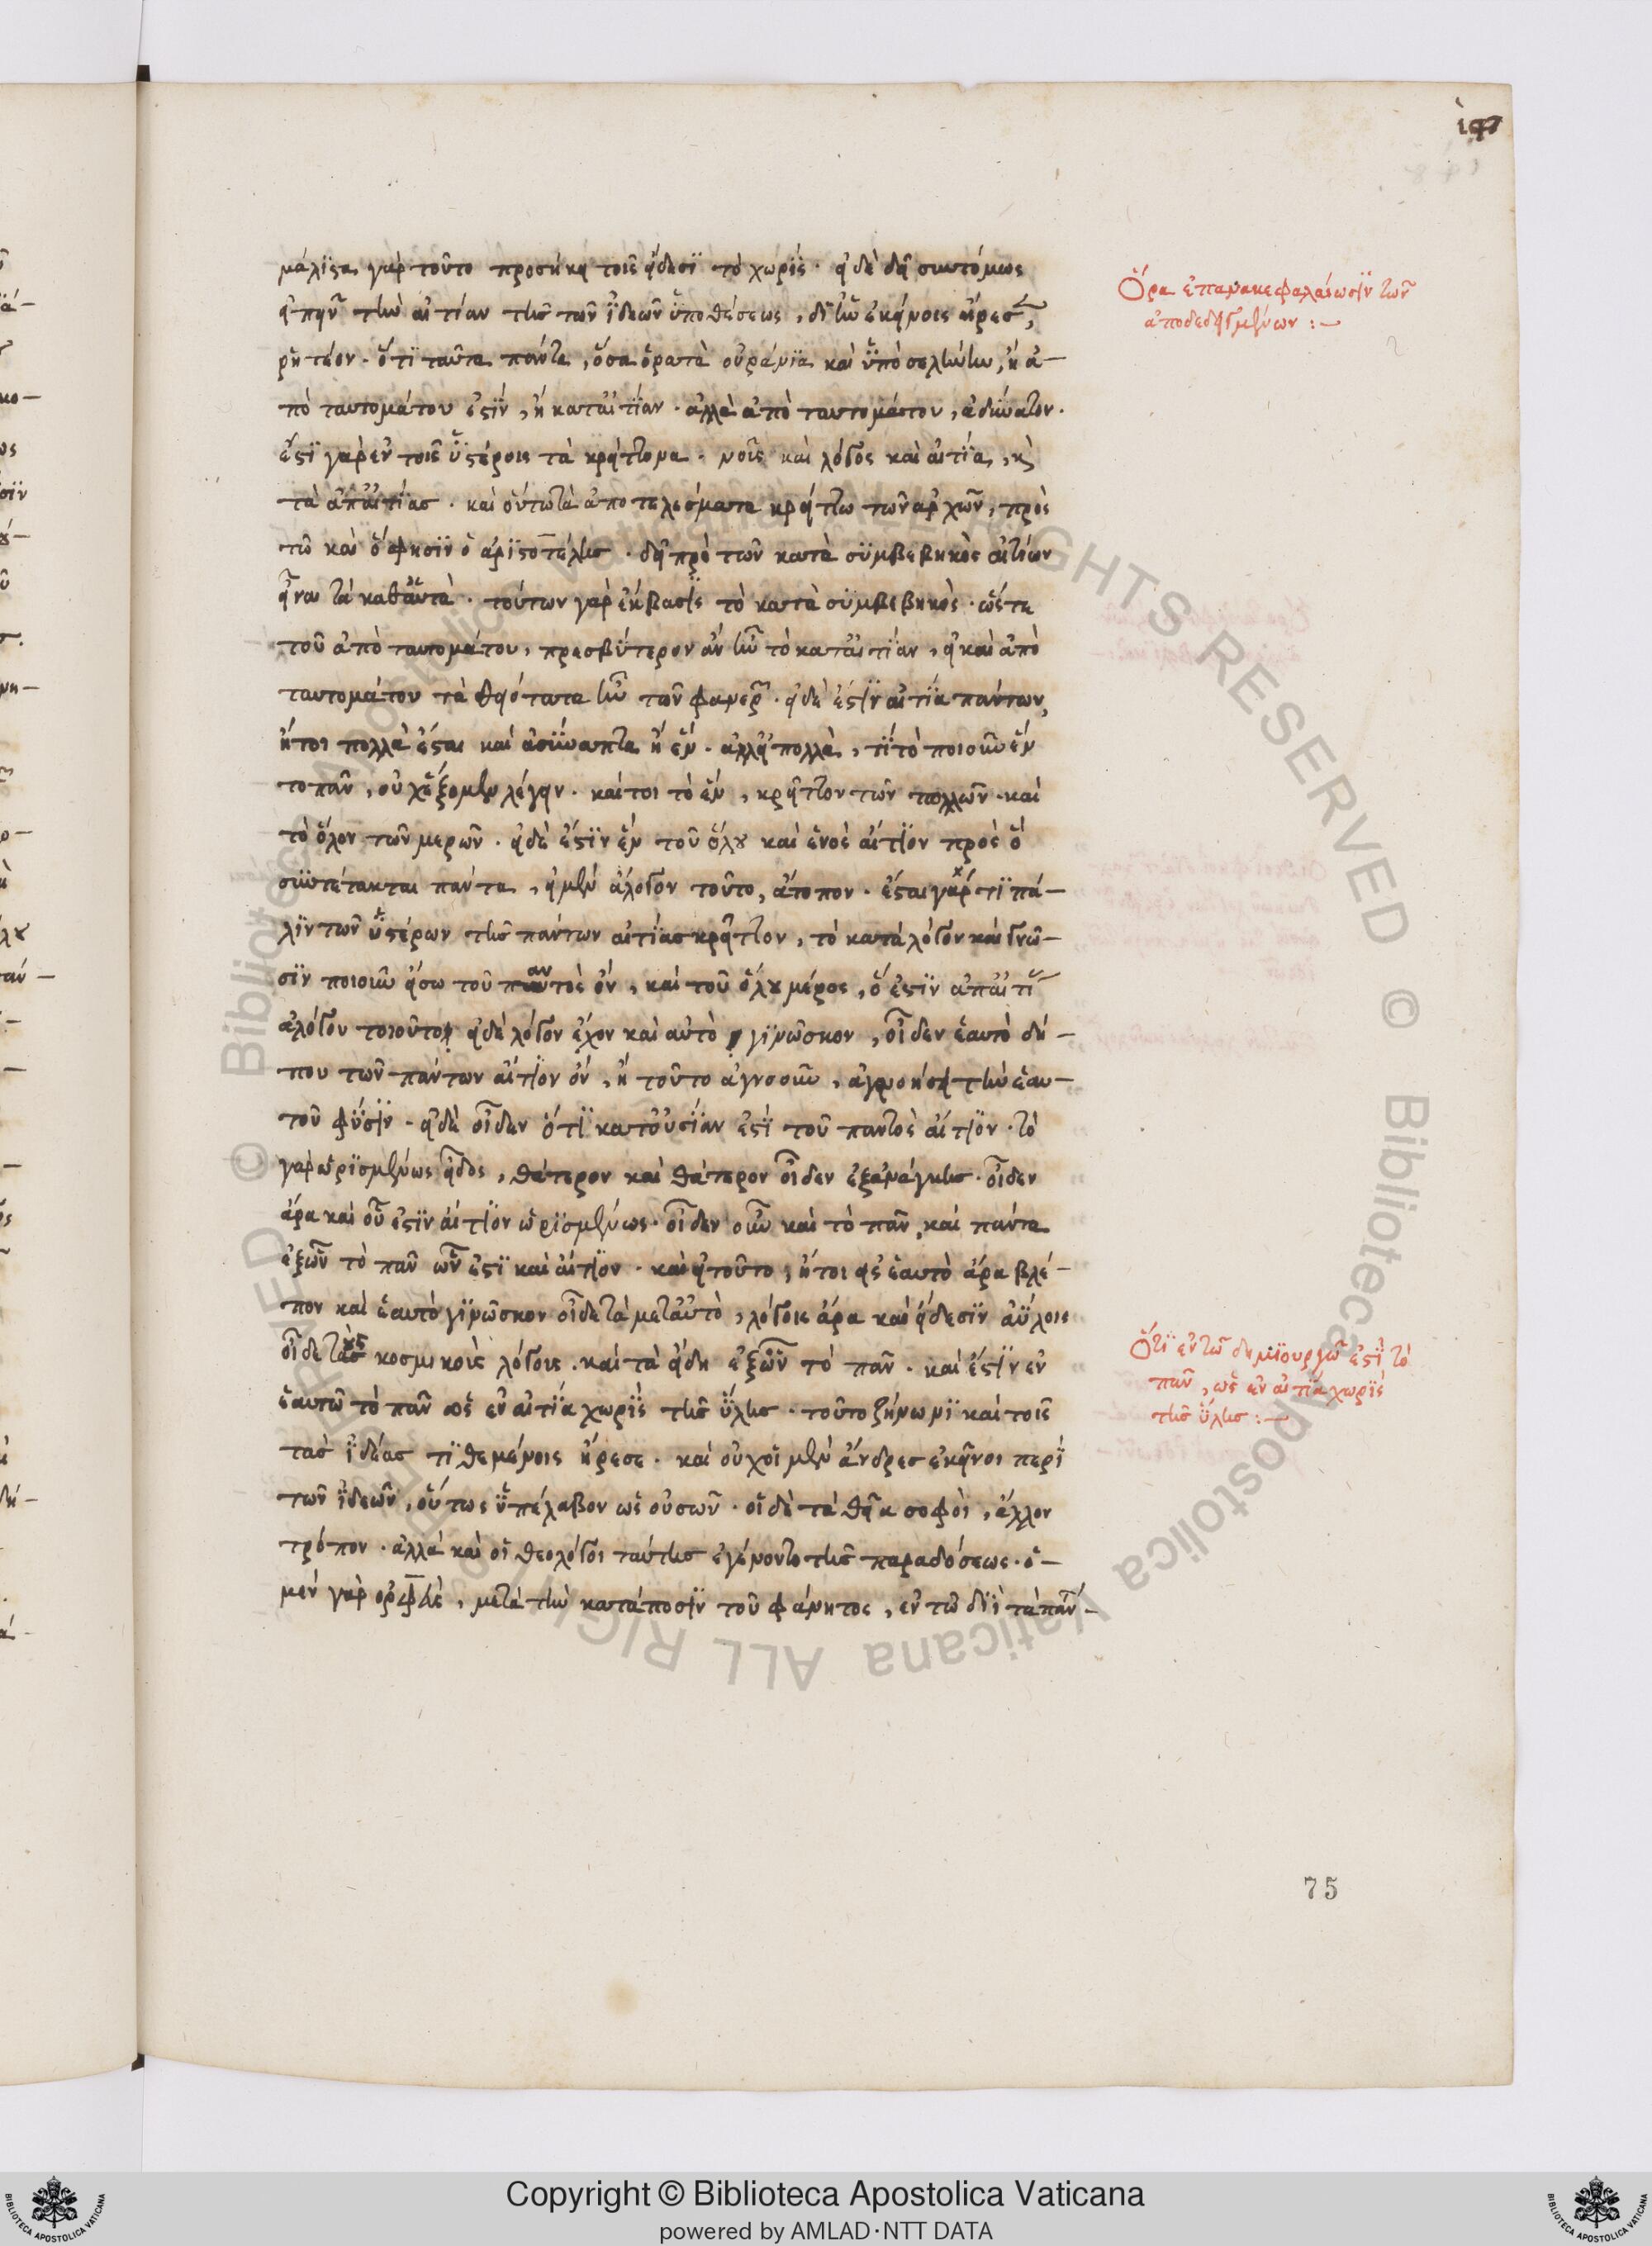 μάλιστα γὰρ τοῦτο προσήκει τοῖς εἴδεσι τὸ χωρίς. εἰ δὲ δεῖ συντόμως
εἰπεῖν τὴν αἰτίαν τῆς τῶν ἰδεῶν ὑποθέσεως, δι' ἣν ἐκείνοις ἤρεσε,
ῥητέον. ὅτι ταῦτα πάντα, ὅσα ὁρατὰ οὐράνια καὶ ὑπὸ σελήνην, ἢ ἀ-
πὸ ταυτομάτου ἐστὶν, ἢ κατ' αἰτίαν. ἀλλὰ ἀπὸ ταυτομάτου, ἀδύνατον.
ἔσται γὰρ ἐν τοῖς ὑστέροις τὰ κρείττονα. νοῦς καὶ λόγος καὶ αἰτία, καὶ
τὰ ἀπ' αἰτίας. καὶ οὕτω τὰ ἀποτελέσματα κρείττω τῶν ἀρχῶν, πρὸς
τῷ καὶ ὅ φησιν ὁ ἀριστοτέλης. δεῖ πρὸ τῶν κατὰ συμβεβηκὸς αἰτίων
εἶναι τὰ καθ' αὑτὰ. τούτων γὰρ ἔκβασις τὸ κατὰ συμβεβηκὸς. ὥστε
τοῦ ἀπὸ ταυτομάτου, πρεσβύτερον ἂν ἦν τὸ κατ' αἰτίαν, εἰ καὶ ἀπὸ
ταυτομάτου τὰ θειότατα ἦν τῶν φανερῶν. εἰ δὲ ἔστιν αἰτία πάντων,
ἤτοι πολλὰ ἔσται καὶ ἀσύναπτα ἢ ἕν. ἀλλ' εἰ πολλὰ, τί τὸ ποιοῦν ἓν
τὸ πᾶν, οὐχ ἕξομεν λέγειν. καίτοι τὸ ἓν, κρεῖττον τῶν πολλῶν. καὶ
τὸ ὅλον τῶν μερῶν. εἰ δὲ ἔστιν ἓν τοῦ ὅλου καὶ ἑνὸς αἴτιον πρὸς ὃ
συντέτακται πάντα, εἰ μὲν ἄλογον τοῦτο, ἄτοπον. ἔσται γάρ τι πά-
λιν τῶν ὑστέρων τῆς πάντων αἰτίας κρεῖττον, τὸ κατὰ λόγον καὶ γνῶ-
σιν ποιοῦν εἴσω τοῦ παντὸς ὂν, καὶ τοῦ ὅλου μέρος, ὅ ἐστιν ἀπ' αἰτίας
ἀλόγου τοιοῦτο. εἰ δὲ λόγον ἔχον καὶ αὐτὸ γινῶσκον, οἶδεν ἑαυτὸ δή-
που τῶν πάντων αἴτιον ὂν, ἢ τοῦτο ἀγνοοῦν, ἀγνοήσει τὴν ἑαυ-
τοῦ φύσιν. εἰ δὲ οἶδεν ὅτι κατ' οὐσίαν ἐστὶ τοῦ παντὸς αἴτιον. τὸ
γὰρ ὡρισμένως εἰδὸς, θάτερον καὶ θάτερον οἶδεν ἐξ ἀνάγκης. οἶδεν
ἄρα καὶ οὗ ἐστὶν αἴτιον ὡρισμένως. οἶδεν οὖν καὶ τὸ πᾶν, καὶ πάντα
ἐξ ὧν τὸ πᾶν ὧν ἐστὶ καὶ αἴτιον. καὶ εἰ τοῦτο, ἤτοι εἰς ἑαυτὸ ἄρα βλέ-
πον καὶ ἑαυτὸ γινῶσκον οἶδε τὰ μετ' αὐτὸ, λόγοις ἄρα καὶ εἴδεσιν ἀΰλοις
οἶδε τοὺς κοσμικοὺς λόγους. καὶ τὰ εἴδη ἐξ ὧν τὸ πᾶν. καὶ ἔστιν ἐν
ἑαυτῷ τὸ πᾶν ὡς ἐν αἰτίᾳ χωρὶς τῆς ὕλης. τοῦτο ζήνωνι καὶ τοῖς
τὰς ἰδέας τιθεμένοις ἤρεσε. καὶ οὐχ οἱ μὲν ἄνδρες ἐκεῖνοι περὶ
τῶν ἰδεῶν, οὕτως ὑπέλαβον ὡς οὐσῶν. οἱ δὲ τὰ θεῖα σοφοὶ, ἄλλον
τρόπον. ἀλλὰ καὶ οἱ θεολόγοι ταύτης ἐγένοντο τῆς παραδόσεως. ὁ-
μὲν γὰρ ὀρφεὺς, μετὰ τὴν κατάποσιν τοῦ φάνητος, ἐν τῷ διῒ τὰ πάν-
Ὅρα ἐπανακεφαλαίωσιν τῶν
ἀποδεδειγμένων :-
Ὅτι ἐν τῷ δημιουργῷ ἐστὶ τὸ
πᾶν, ὡς ἐν αἰτίᾳ χωρὶς
τῆς ὕλης :-
75
Copyright © Biblioteca Apostolica Vaticana
powered by AMLAD・NTT DATA